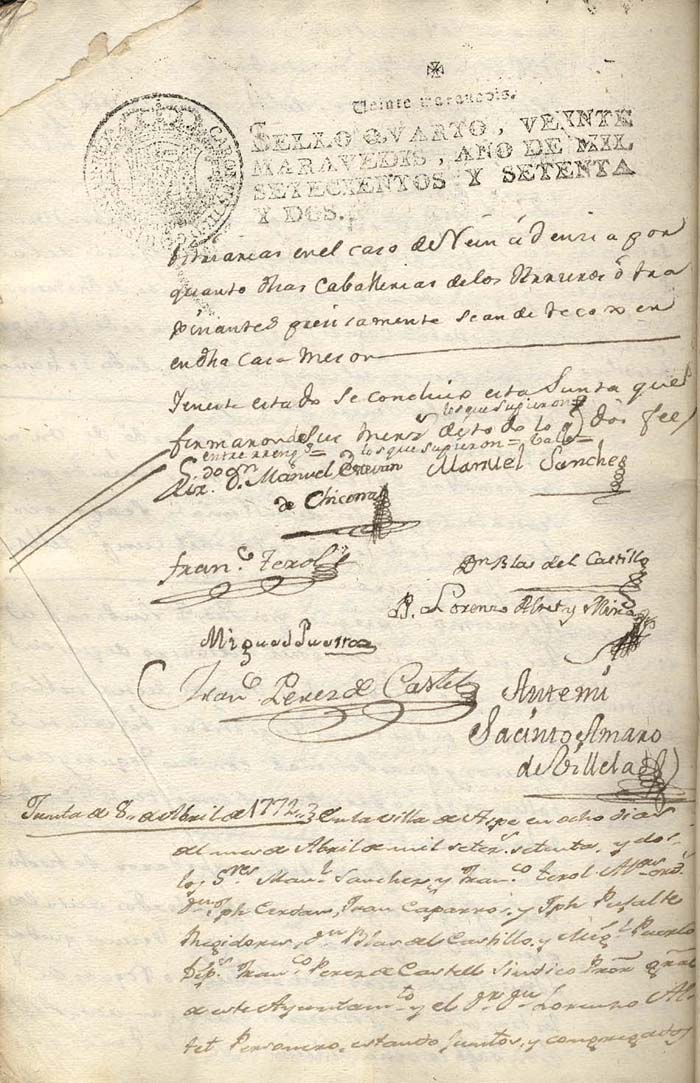 Veinte maravedis.
SELLO QVARTO, VEINTE
MARAVEDIS, AÑO DE MIL
SETECIENTOS Y SETENTA
Y DOS.
CAROLUS III
en el caso de por
quanto dhas Caballerias de los Arrieros ó tra
ginantes precisamente sean de
en dha Casa Meson
Y en este estado se concluió esta Junta que
los que supieron
firmaron sus mercs de todo lo q doi fee
entre rrengs = los que supieron = Vale =
Lizdo Dn Manuel Estevan
de Chicona
Manuel Sanchez
Franco Terol
Dn Blas del Castillo
D. Lorenzo
Miguel Puerto
Franco Perez de Castell
Antemi
Jacinto Amaro
de Villela
Junta de 8,, de Abril de 1772,, En la villa de Aspe en ocho dias
del mes de Abril de mil setecs setenta, y dos
los Sres Manl Sanchez y Franco Terol Alres ords
Jph Cerdan, Fran Caparros, y Jph
Regidores, Dn Blas del Castillo, y Migl Puerto
Dips Franco Perez de Castell Sindico Pror Gral
de este Ayuntamto y el Lorenzo Al
tet Personero, estando juntos, y congregados